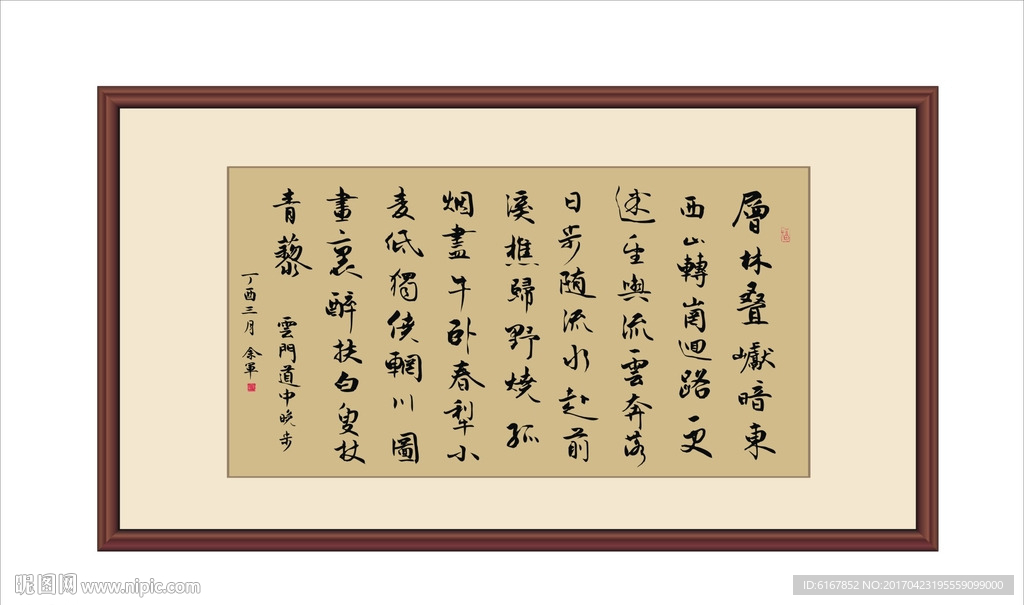 層林叠巘暗東
西山轉崗迴路更
迷望與流雲奔落
日步随流水赴前
溪樵歸野燒孤
烟盡牛卧春犁小
麦低獨輞川圖
畫裏醉扶白叟杖
青藜 雲門道中晚步
丁酉三月 余軍
昵图网 www.nipic.com
ID:6167852 NO:20170423195559099000